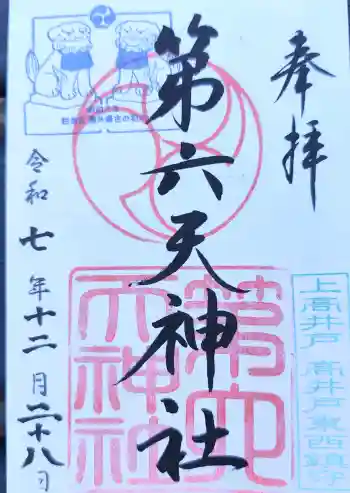 奉拝
第六天神社
令和七年十二月二十八日
第六天神社
上高井戸 高井戸東西鎮守